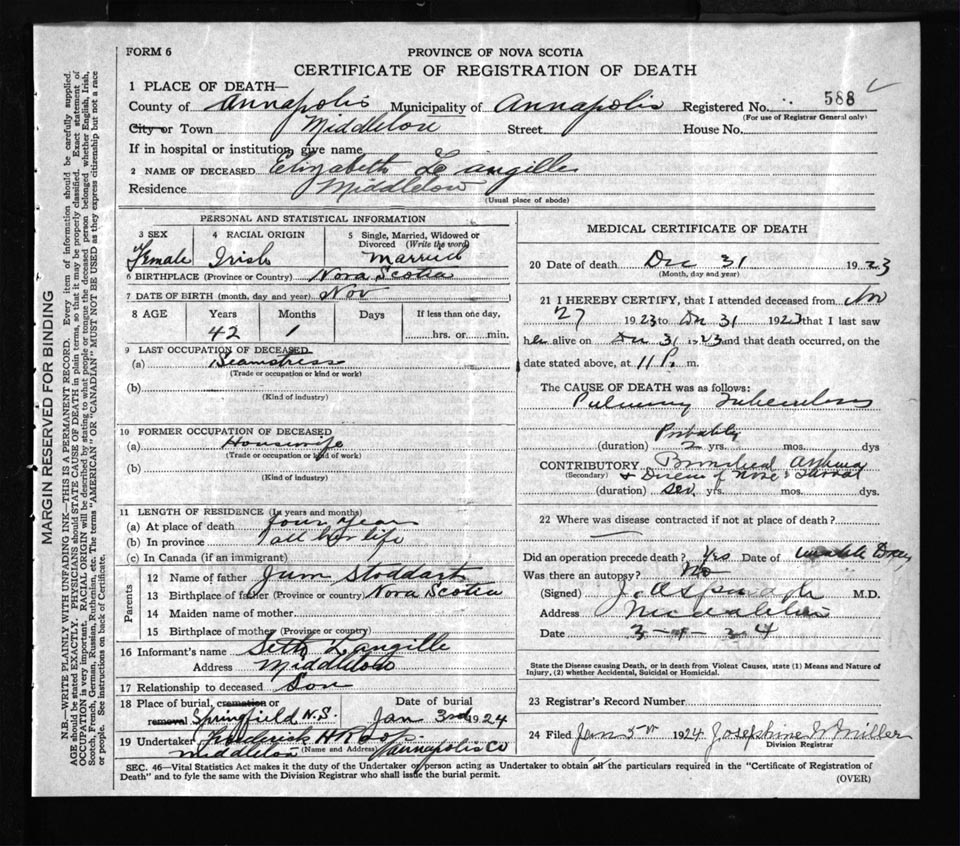 FORM 6
PROVINCE OF NOVA SCOTIA
CERTIFICATE OF REGISTRATION OF DEATH
1 PLACE OF DEATH—
County of Annapolis Municipality of Annapolis Registered No. 588
(For use of Registrar General only)
City or Town Middleton Street House No.
If in hospital or institution, give name
2 NAME OF DECEASED Elizabeth Langille
Residence Middleton
(Usual place of abode)
PERSONAL AND STATISTICAL INFORMATION
3 SEX 4 RACIAL ORIGIN 5 Single, Married, Widowed or Divorced (Write the word)
Female Irish Married
6 BIRTHPLACE (Province or Country) Nova Scotia
7 DATE OF BIRTH (month, day and year) Nov
8 AGE Years Months Days If less than one day,
42 1 hrs. or min.
9 LAST OCCUPATION OF DECEASED
(a) Seamstress
(Trade or occupation or kind of work)
(b)
(Kind of industry)
10 FORMER OCCUPATION OF DECEASED
(a) Housewife
(Trade or occupation or kind of work)
(b)
(Kind of industry)
11 LENGTH OF RESIDENCE (In years and months)
(a) At place of death four years
(b) In province all her life
(c) In Canada (if an immigrant)
Parents
12 Name of father Jum Stoddart
13 Birthplace of father (Province or country) Nova Scotia
14 Maiden name of mother
15 Birthplace of mother (Province or country)
16 Informant's name Seth Langille
Address Middleton
17 Relationship to deceased Son
18 Place of burial, cremation or removal Date of burial
Springfield N.S. Jan 3rd 1924
19 Undertaker Frederick H
(Name and Address)
Middleton Annapolis Co
MEDICAL CERTIFICATE OF DEATH
20 Date of death Dec 31 1923
(Month, day and year)
21 I HEREBY CERTIFY, that I attended deceased from Nov
27 1923 to Dec 31 1923 that I last saw
her alive on Dec 31 1923 and that death occurred, on the
date stated above, at 11 P. m.
The CAUSE OF DEATH was as follows:
Pulmonary Tuberculosis
Probably
(duration) 2 yrs. mos. dys
CONTRIBUTORY Bronchial Asthma
(Secondary) & Disease of Nose & throat
(duration) sev. yrs. mos. dys.
22 Where was disease contracted if not at place of death?
Did an operation precede death? Yes Date of
Was there an autopsy? No
(Signed) M.D.
Address Middleton
Date 3-1-24
State the Disease causing Death, or in death from Violent Causes, state (1) Means and Nature of
Injury, (2) whether Accidental, Suicidal or Homicidal.
23 Registrar's Record Number
24 Filed Jan 5th 1924 Josephine W Miller
Division Registrar
SEC. 46—Vital Statistics Act makes it the duty of the Undertaker or person acting as Undertaker to obtain all the particulars required in the "Certificate of Registration of
Death" and to fyle the same with the Division Registrar who shall issue the burial permit.
(OVER)
MARGIN RESERVED FOR BINDING
N.B.—WRITE PLAINLY WITH UNFADING INK—THIS IS A PERMANENT RECORD. Every item of information should be carefully supplied.
AGE should be stated EXACTLY. PHYSICIANS should STATE CAUSE OF DEATH in plain terms, so that it may be properly classified. Exact statement of
OCCUPATION is very important. RACIAL ORIGIN will be described by stating to what people or tongue the deceased person belonged whether English, Irish,
Scotch, French, German, Russian, Ruthenian, etc. The terms "AMERICAN" OR "CANADIAN" MUST NOT BE USED as they express citizenship but not a race
or people. See instructions on back of Certificate.